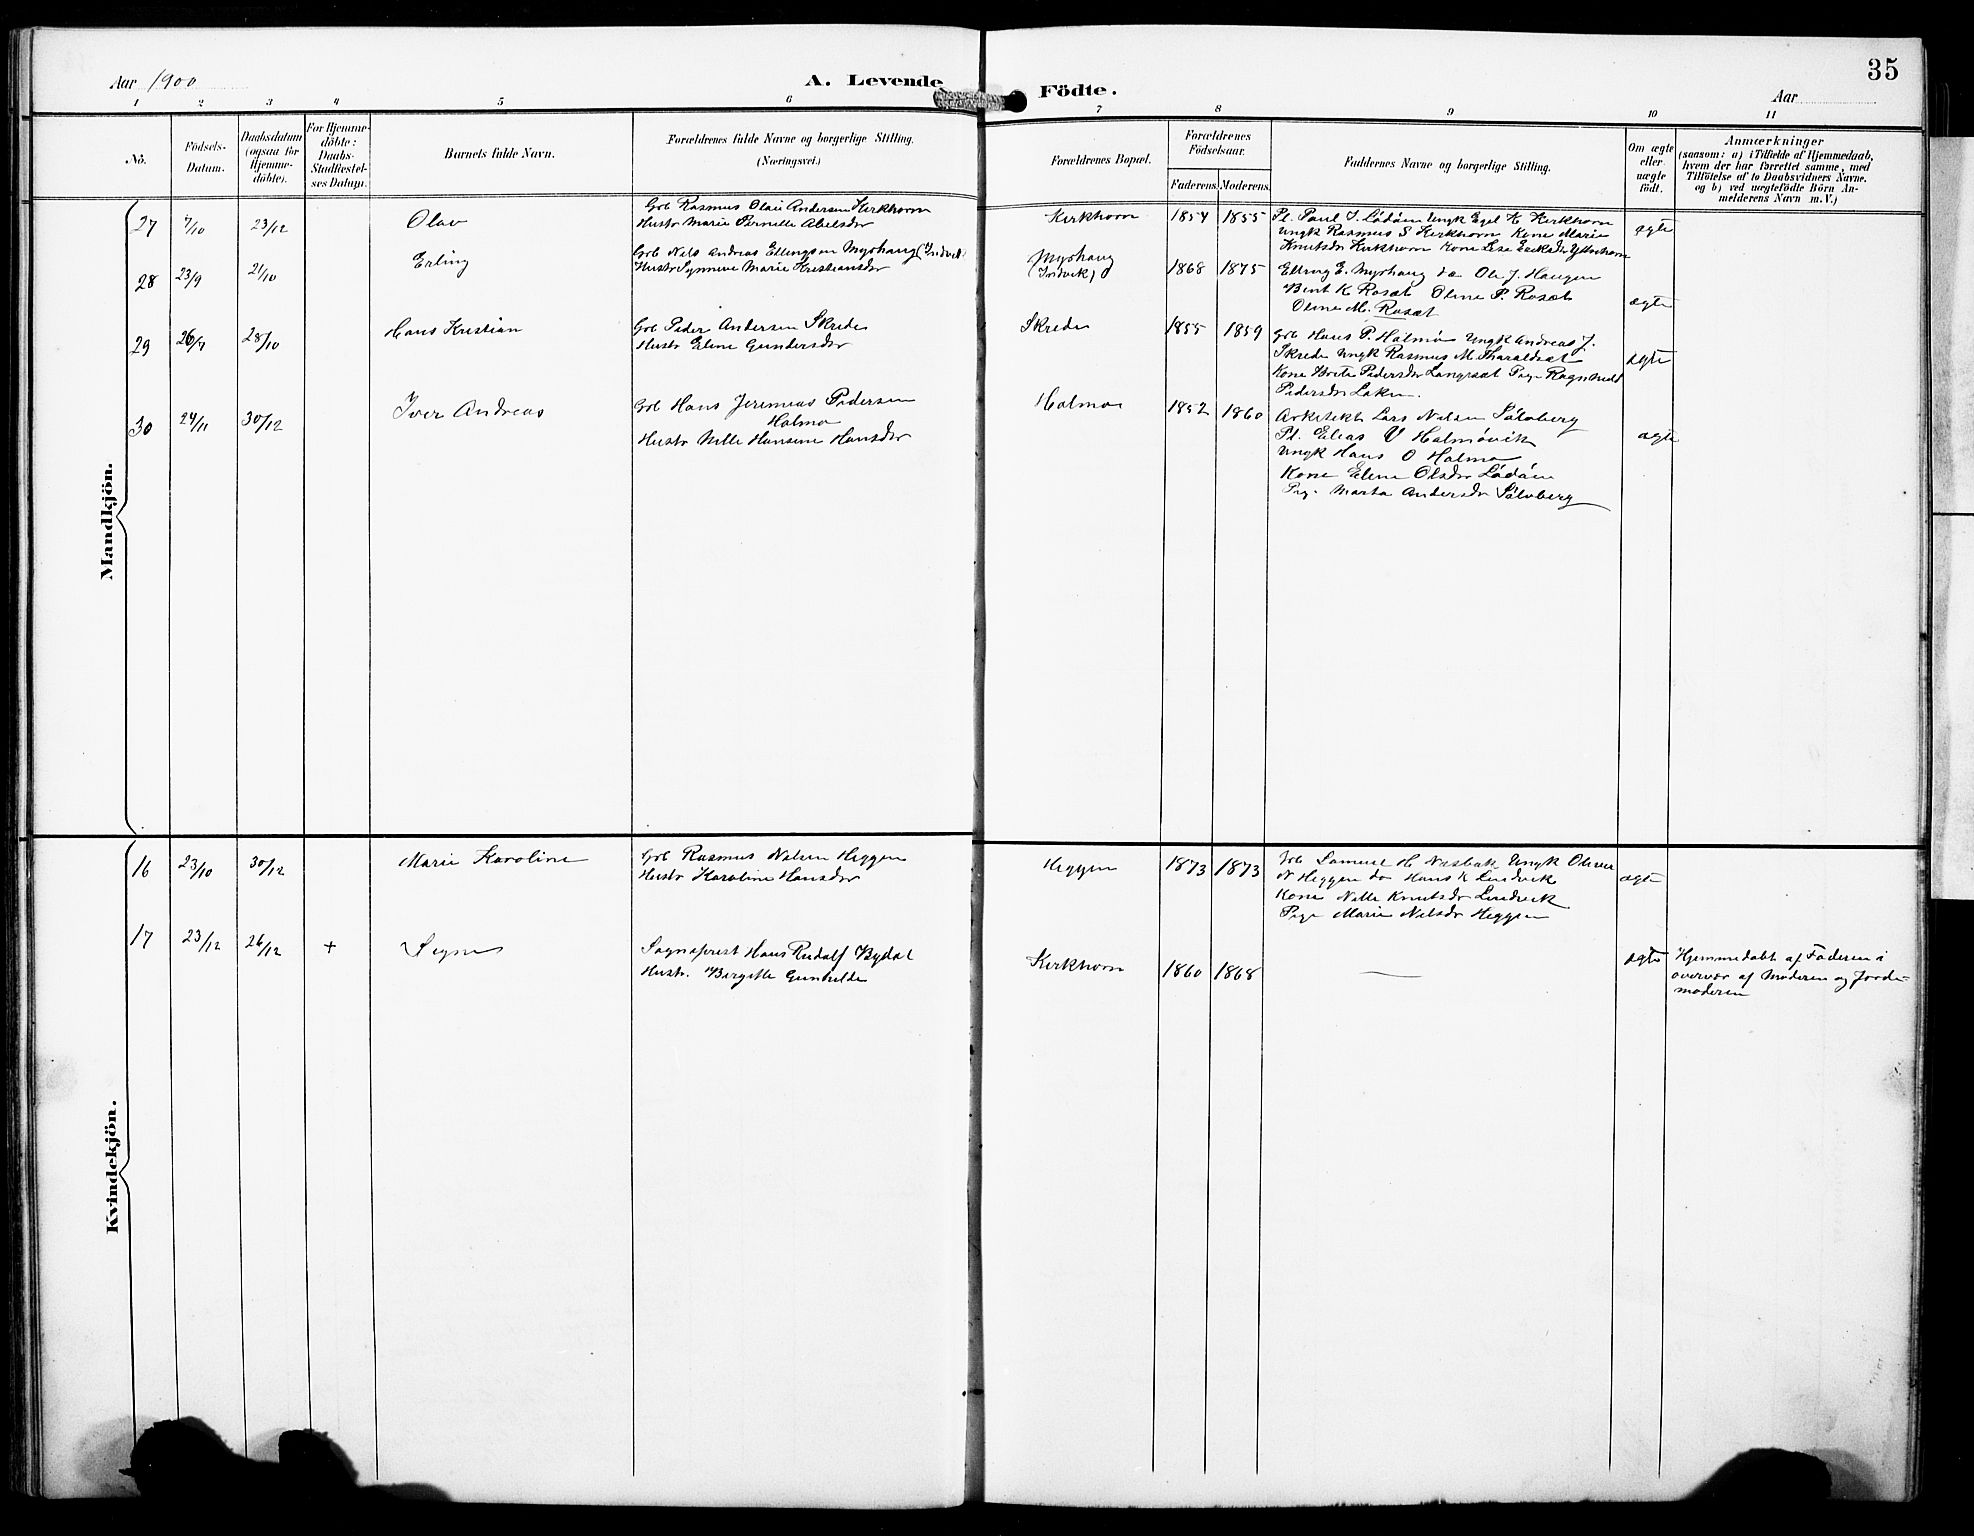 35
Aar 1900
A. Levende
Födte.
Aar
1 2 3 4 5 6 7 8 9 10 11
No.
Födsels-
Datum.
Daabsdatum
(ogsaa for
Hjemme-
döbte).
For Hjemme-
döbte:
Daabs-
Stadfæstel-
ses Datum.
Barnets fulde Navn.
Forældrenes fulde Navne og borgerlige Stilling.
(Næringsvei.)
Forældrenes Bopæl.
Forældrenes
Födselsaar.
Faderens. Moderens.
Faddernes Navne og borgerlige Stilling.
Om ægte
eller
uægte
födt.
Anmærkninger
(saasom: a) i Tilfælde af Hjemmedaab,
hvem der har forrettet samme, med
Tilföielse af to Daabsvidners Navne.
og b) ved uægtefödte Börn An-
melderens Navn m.V.)
Mandkjön.
27 7/10 23/12 Olav
Gbr Rasmus Olai Andersen Kirkhorn
Hustr Marie Pernille Abelsdtr
Kirkhorn 1854 1855
Pt. Paul J. Lödöen Ungk Egel K Kirkhorn
Ungk Rasmus S Kirkhorn Kone Marie
Knutsdr Kirkhorn Kone Lise
ægte
28 23/9 21/10 Erling
Gbr Nils Andreas Ellingsen Myrhaug (Indvik)
Hustr Synneve Marie Kristiansdr
Myrhaug
(Indvik)
1868 1875
Elling E. Myrhaug do Ole J. Haugen
Bent K Rosæt Oline P. Rosæt
Oline M. Rosæt
ægte
29 26/9 28/10 Hans Kristian
Gbr Peder Andersen Skrede
Hustr Eline Gundersdr
Skrede 1855 1859
Gbr Hans P. Holmö Ungk Andreas J.
Skrede Ungk Rasmus M. Tharaldsæt
Kone Brite Pedersdr Langesæt Pige Ragnhild
Pedersdr
ægte
30 24/11 30/12 Iver Andreas
Gbr Hans Jeremias Pedersen
Holmö
Hustr Nille Hansine Hansdr
Holmö 1852 1860
Arkitekt Lars Nilsen Sölvberg
Pt. Elias V Holmövik
Ungk Hans O Holmö
Kone Eline Olsdr Lödöen
Pige Marta Andersdr Sölvberg
ægte
Kvindekjön.
16 23/10 30/12 Marie Karoline
Gbr Rasmus Nilsen Heggen
Hustr Karoline Hansdr
Heggen 1873 1873
Gbr Samuel H. Næsbak Ungk Oliver
N Heggen do Hans K Lindvik
Kone Nille Knutsdr Lindvik
Pige Marie Nilsdr Heggen
ægte
17 23/12 26/12 + Signe
Sognepræst Hans Rudolf Bydal
Hustr. Birgitte Gunhilde
Kirkhorn 1860 1868
—
ægte
Hjemmedøbt af Faderen i
overvær af Moderen og Jorde-
moderen